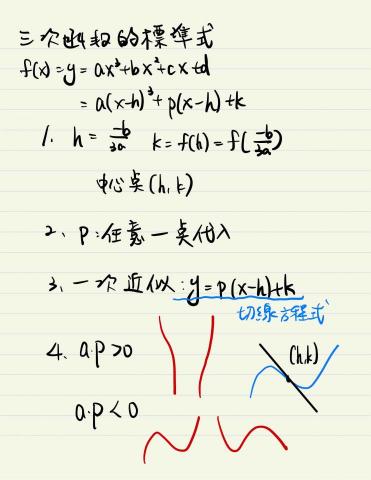 三次函數的標準式
f(x)=y=ax³+bx²+cx+d
=a(x-h)³+p(x-h)+k
1. h=-b/3a k=f(h)=f(-b/3a)
中心點(h,k)
2、p:任意一點代入
3、一次近似:y=p(x-h)+k
切線方程式
4、a.p>0
(h,k)
a.p<0